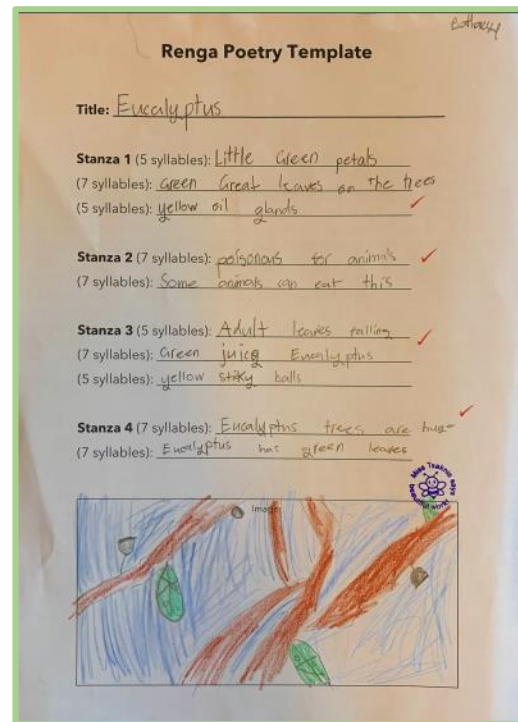 Renga Poetry Template
Title: Eucalyptus
Stanza 1 (5 syllables): Little Green petals
(7 syllables): Green Great leaves on the trees
(5 syllables): yellow oil glands
Stanza 2 (7 syllables): poisonous for animals
(7 syllables): Some animals can eat this
Stanza 3 (5 syllables): Adult leaves falling
(7 syllables): Green juicy Eucalyptus
(5 syllables): yellow stiky balls
Stanza 4 (7 syllables): Eucalyptus trees are huge
(7 syllables): Eucalyptus has green leaves
Image: